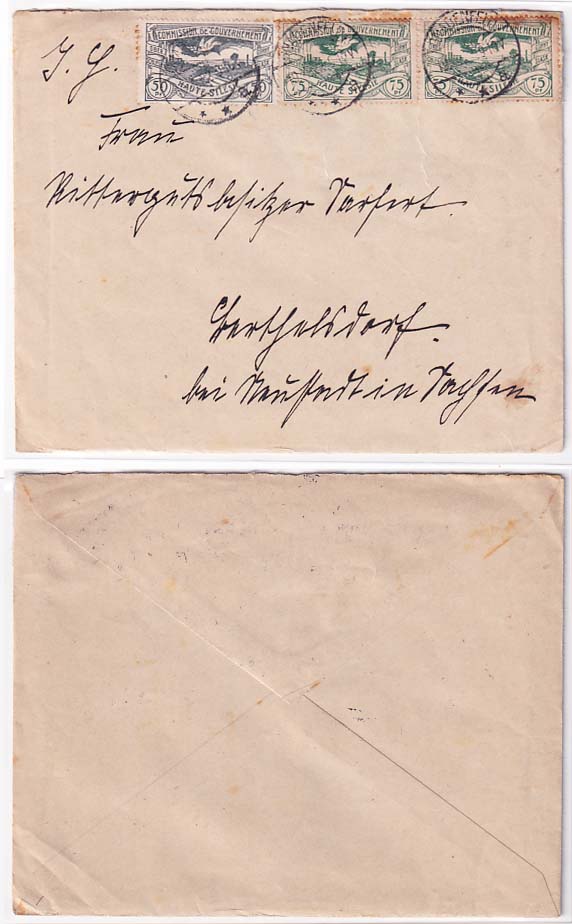 COMMISSION DE GOUVERNEMENT COMMISSION DE GOUVERNEMENT COMMISSION DE GOUVERNEMENT
50 HAUTE SILÉSIE 50 75 HAUTE SILÉSIE 75 75 HAUTE SILÉSIE 75
I. H.
Frau
Rittergutsbesitzer Sarfert.
Berthelsdorf.
bei Neustadt in Sachsen